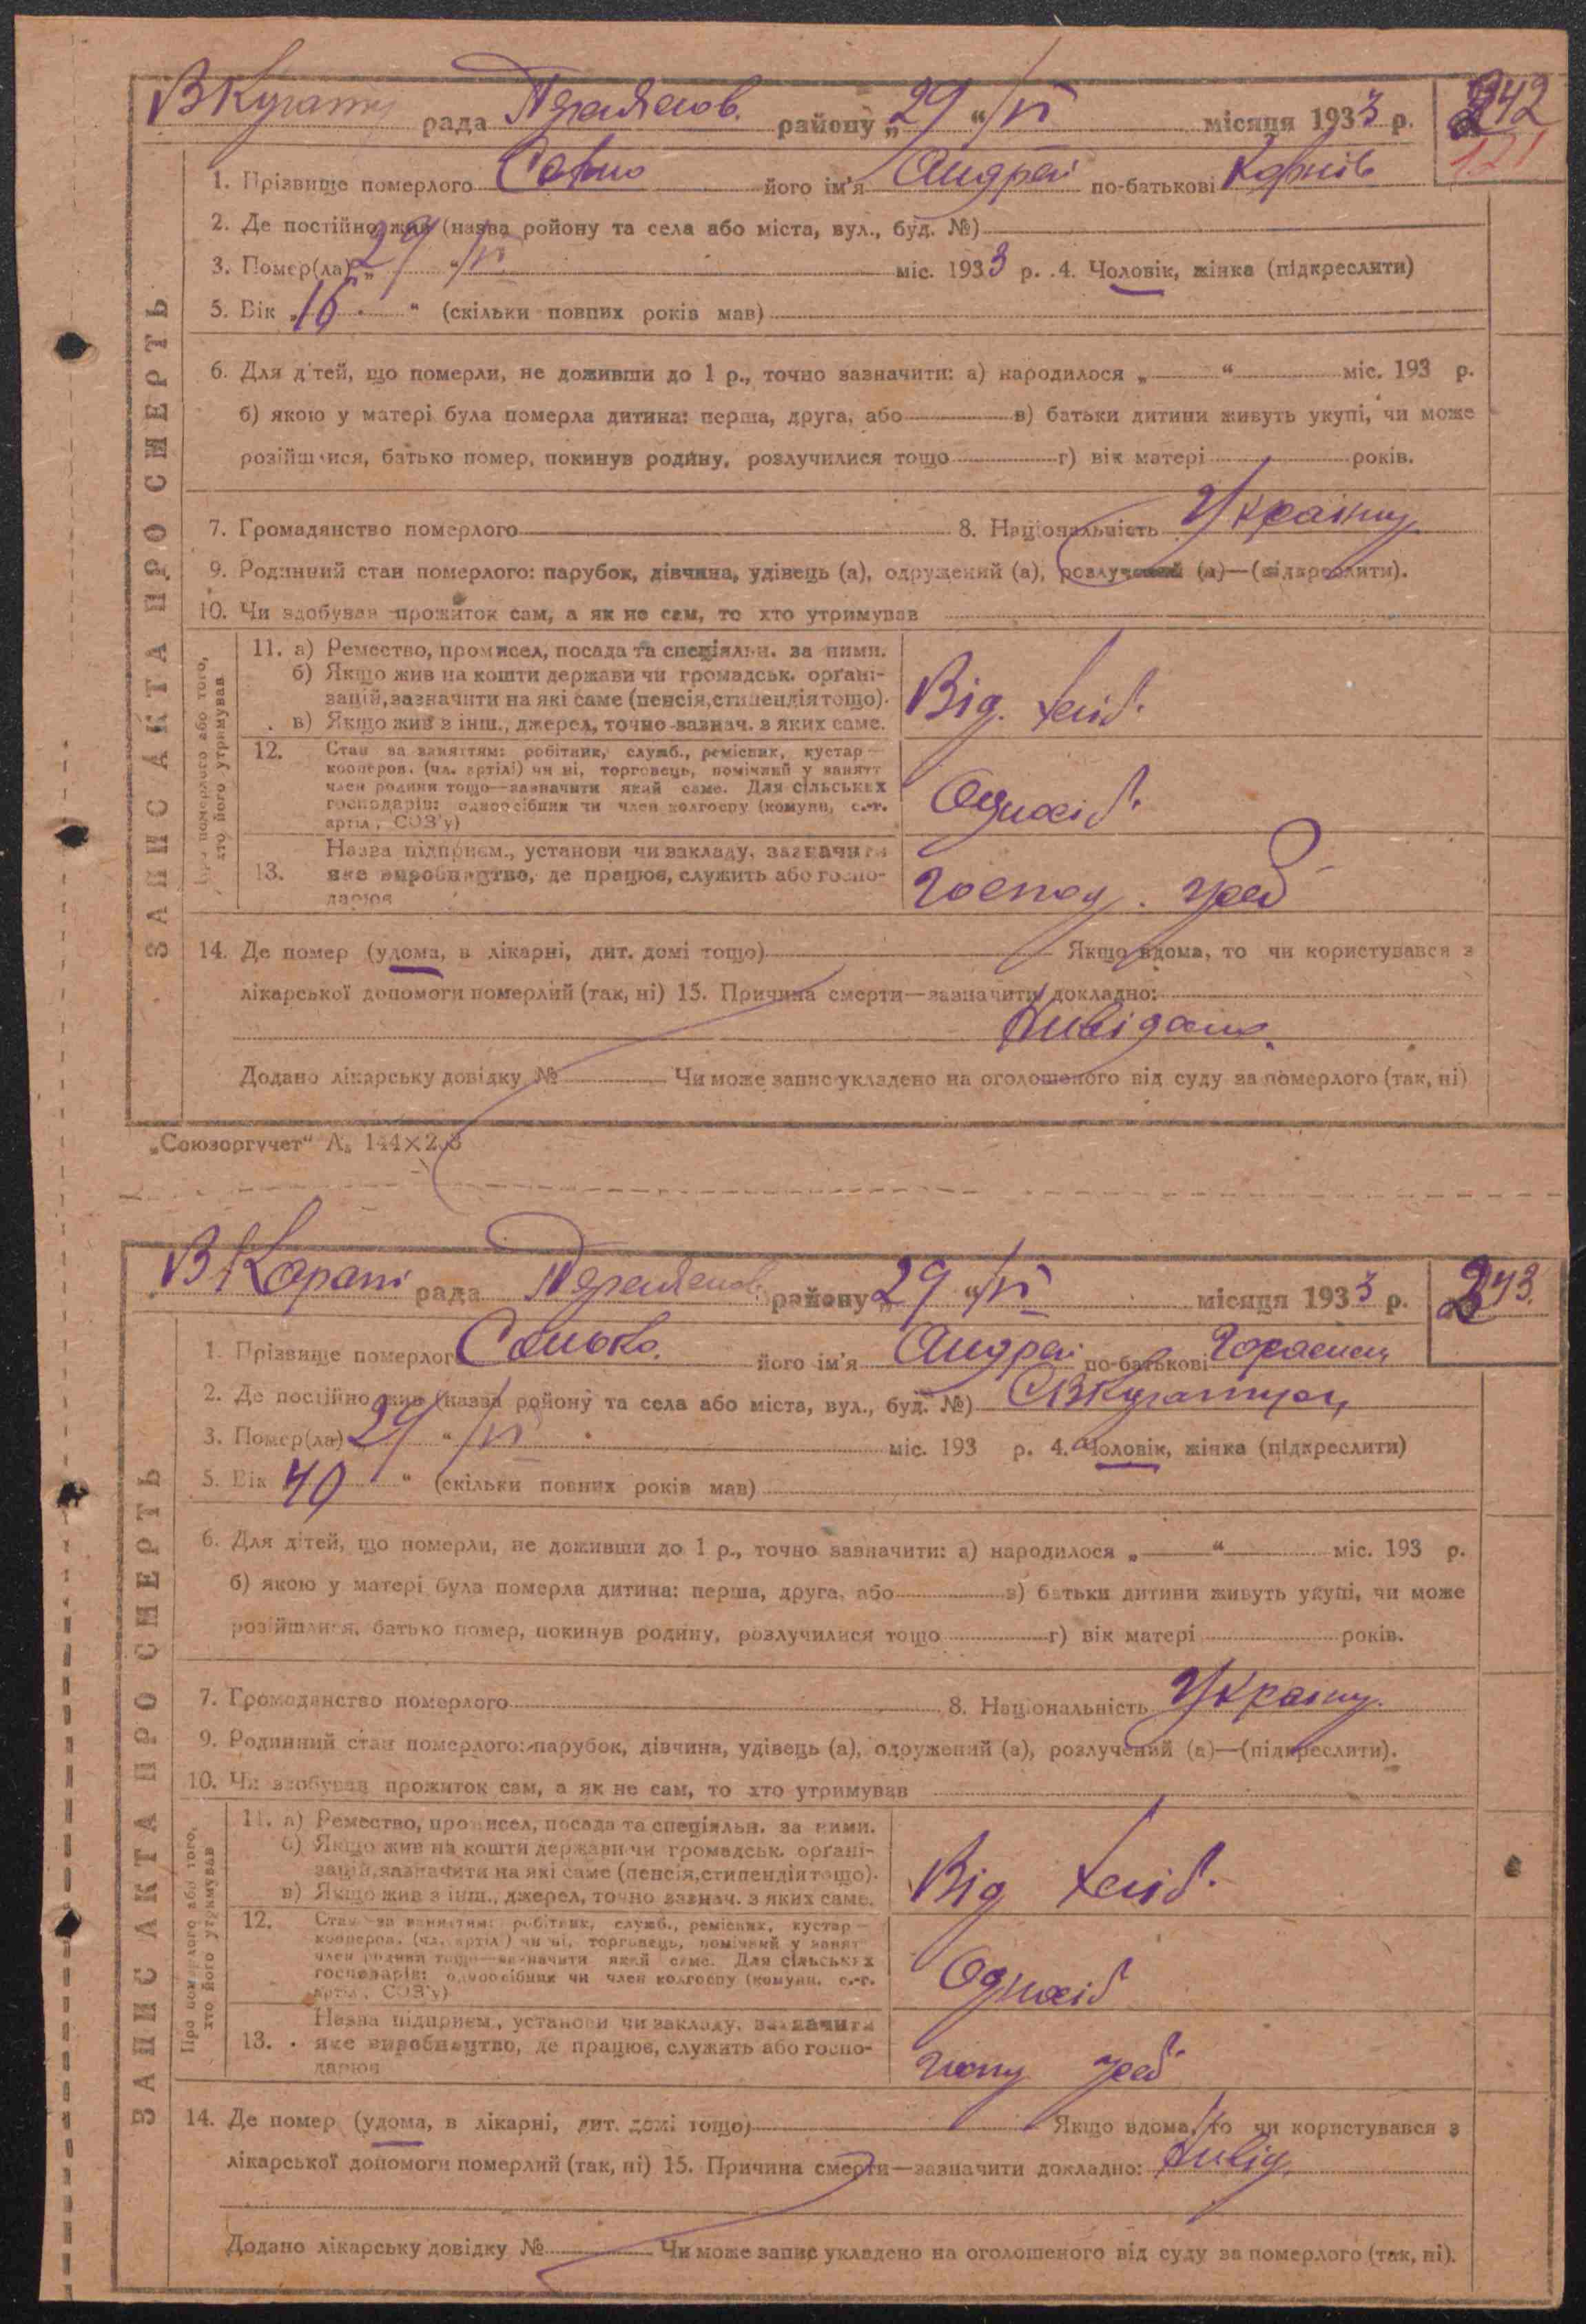 рада Переяслов. району „29 “ VI місяця 1933 р. 242
121
1. Прізвище померлого його ім'я Андрей по-батькові Корнів
2. Де постійно жив (назва ройону та села або міста, вул., буд. №)
3. Помер(ла) „29 “ VI міс. 1933 р. 4. Чоловік, жінка (підкреслити)
5. Вік „16 “ (скільки повних років мав)
6. Для дітей, що померли, не доживши до 1 р., точно зазначити: а) народилося „ “ міс. 193 р.
б) якою у матері була померла дитина: перша, друга, або в) батьки дитини живуть укупі, чи може
розійшлися, батько помер, покинув родину, розлучилися тощо г) вік матері років.
7. Громадянство померлого 8. Національність Украінц
9. Родинний стан померлого: парубок, дівчина, удівець (а), одружений (а), розлучений (а)—(підкреслити).
10. Чи здобував прожиток сам, а як не сам, то хто утримував
ЗАПИС АКТА ПРО СМЕРТЬ
Про померлого або того, хто його утримував
11. а) Ремество, промисел, посада та спеціяльн. за ними.
б) Якщо жив на кошти держави чи громадськ. орґані-
зацій, зазначити на які саме (пенсія, стипендія тощо).
в) Якщо жив з інш., джерел, точно зазнач. з яких саме.
12. Стан за заняттям: робітник, служб., ремісник, кустар —
кооперов. (чл. артілі) чи ні, торговець, помічний у занятт
член родини тощо—зазначити який саме. Для сільських
господарів: одноосібник чи член колгоспу (комуни, с.-г.
артіл, СОЗ'у)
Одноосіб.
Назва підприєм., установи чи закладу, зазначити
13. яке виробництво, де працює, служить або госпо-
дарює
14. Де помер (удома, в лікарні, дит. домі тощо) Якщо вдома, то чи користувався з
лікарської допомоги померлий (так, ні) 15. Причина смерти—зазначити докладно:
Додано лікарську довідку № Чи може запис укладено на оголошеного від суду за померлого (так, ні)
„Союзоргучет“
В Карані рада Переяслов району „29 “ VI місяця 1933 р. 243.
1. Прізвище померлого його ім'я Андрей по-батькові
2. Де постійно жив (назва ройону та села або міста, вул., буд. №)
3. Помер(ла) 29 “ VI міс. 193 р. 4. Чоловік, жінка (підкреслити)
5. Вік 40 “ (скільки повних років мав)
6. Для дітей, що померли, не доживши до 1 р., точно зазначити: а) народилося „ “ міс. 193 р.
б) якою у матері була померла дитина: перша, друга, або в) батьки дитини живуть укупі, чи може
розійшлися, батько помер, покинув родину, розлучилися тощо г) вік матері років.
7. Громадянство померлого 8. Національність Украінц.
9. Родинний стан померлого: парубок, дівчина, удівець (а), одружений (а), розлучений (а)—(підкреслити).
10. Чи здобував прожиток сам, а як не сам, то хто утримував
ЗАПИС АКТА ПРО СМЕРТЬ
Про померлого або того, хто його утримував
11. а) Ремество, промисел, посада та спеціяльн. за ними.
б) Якщо жив на кошти держави чи громадськ. орґані-
зацій, зазначити на які саме (пенсія, стипендія тощо).
в) Якщо жив з інш., джерел, точно зазнач. з яких саме.
12. Стан за заняттям: робітник, служб., ремісник, кустар —
кооперов. (чл. артіл ) чи ні, торговець, помічний у занят
член родини тощо—зазначити який саме. Для сільських
господарів: одноосібник чи член колгоспу (комуни, с.-г.
артіл, СОЗ'у)
Одноосіб
Назва підприєм., установи чи закладу, зазначити
13. яке виробництво, де працює, служить або госпо-
дарює
14. Де помер (удома, в лікарні, дит. домі тощо) Якщо вдома, то чи користувався з
лікарської допомоги померлий (так, ні) 15. Причина смерти—зазначити докладно:
Додано лікарську довідку № Чи може запис укладено на оголошеного від суду за померлого (так, ні).